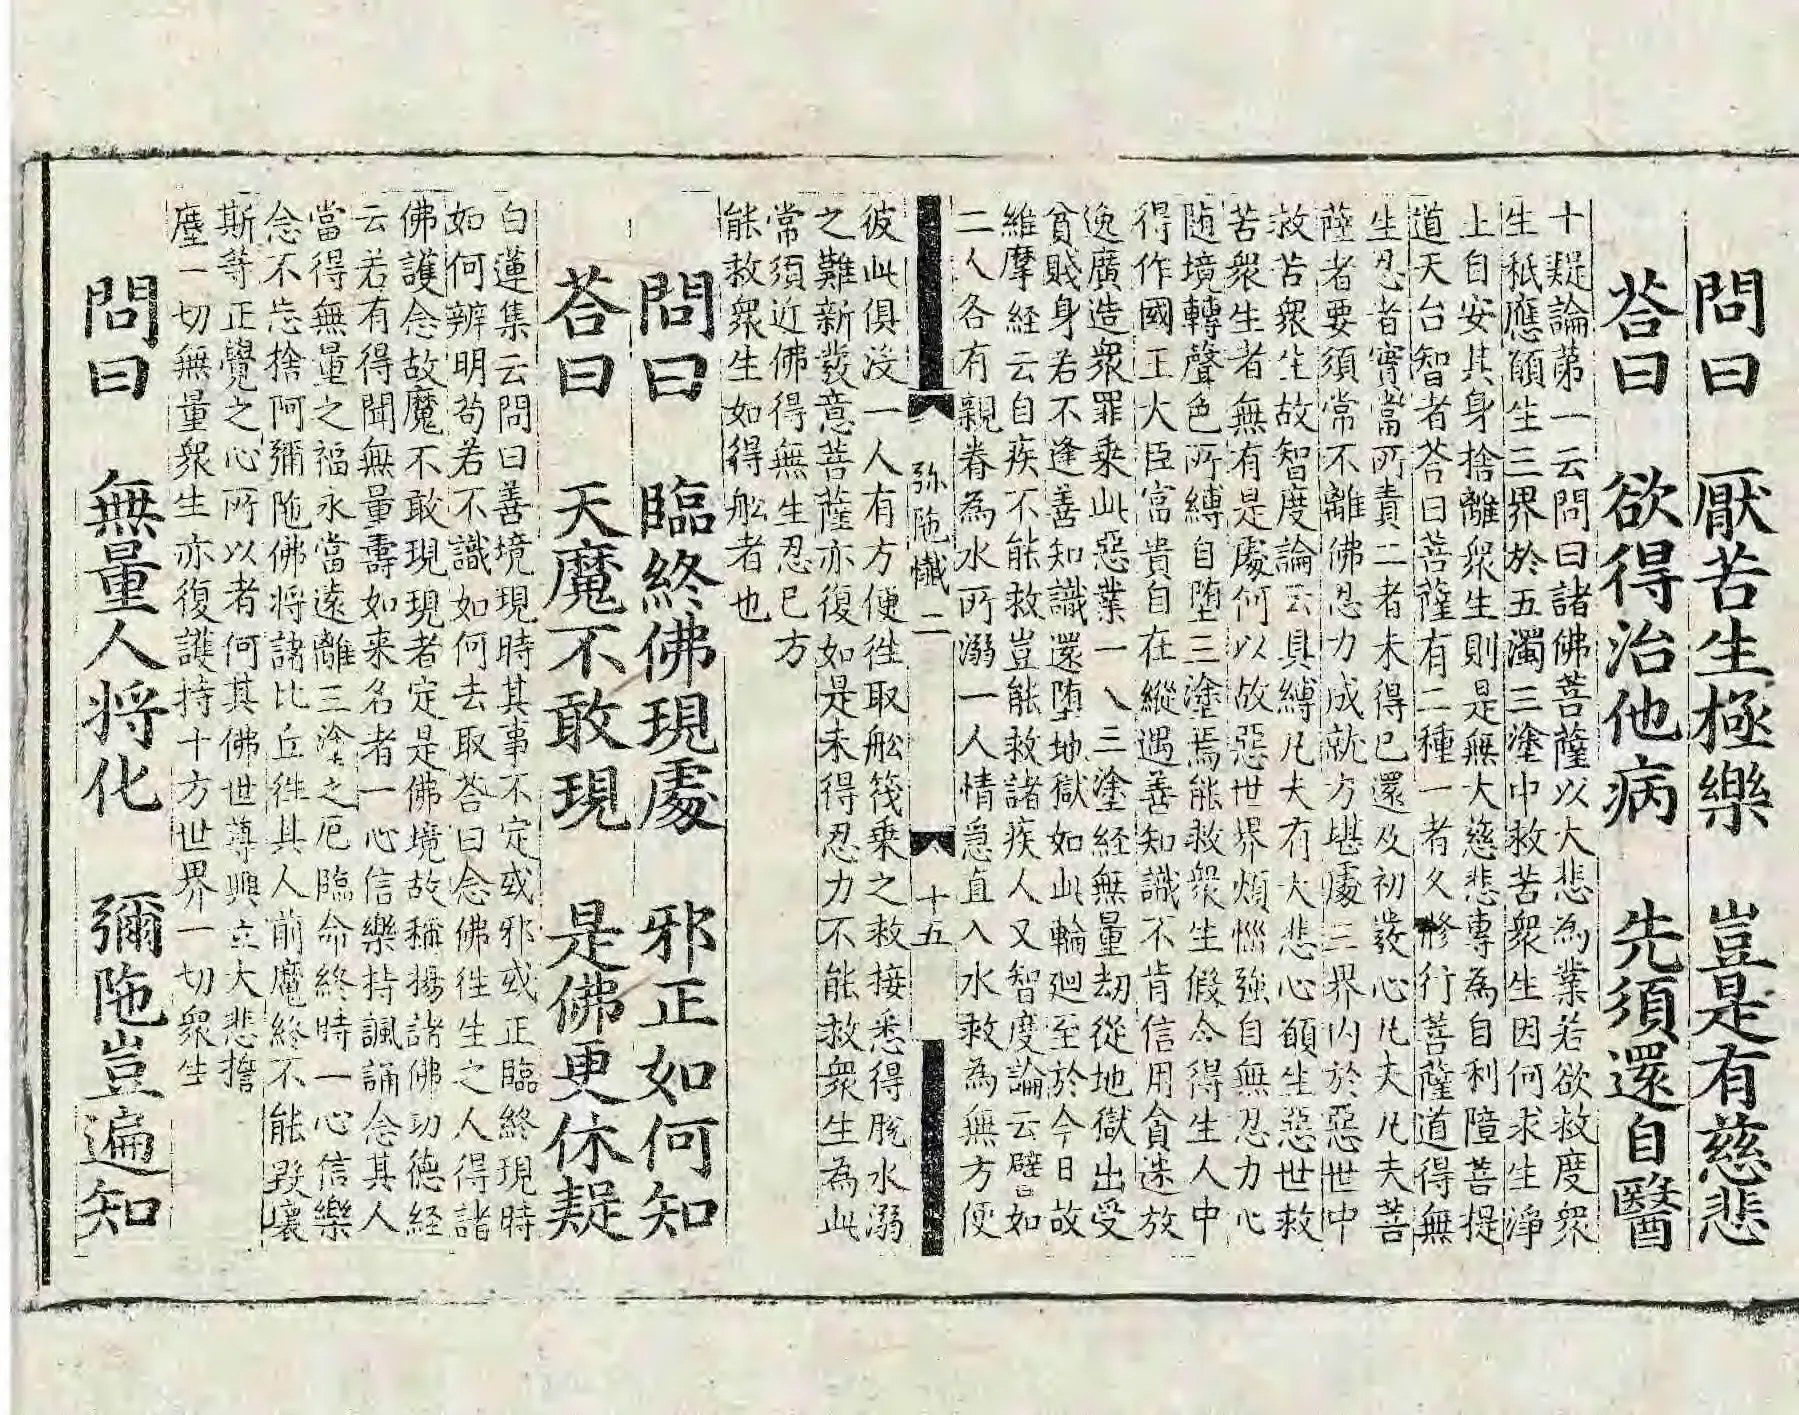 問曰 厭苦生極樂 豈是有慈悲
荅曰 欲得治他病 先須還自醫
十疑論苐一云問曰諸佛菩薩以大悲為業若欲救度衆
生秖應願生三界於五濁三塗中救苦衆生因何求生淨
上自安其身捨離衆生則是無大慈悲專為自利障菩提
道天台智者荅曰菩薩有二種一者久修行菩薩道得無
生忍者實當所責二者未得已還及初發心凡夫凡夫菩
薩者要須常不離佛忍力成就方堪處三界内於惡世中
救苦衆生故智度論云具縛凡夫有大悲心願生惡世救
苦衆生者無有是處何以故惡世界煩惱強自無忍力心
随境轉聲色所縛自堕三塗焉能救衆生假令得生人中
得作國王大臣富貴自在縱遇善知識不肯信用貪迷放
逸廣造衆罪乗此惡業一入三塗経無量劫從地獄出受
貧賤身若不逢善知識還堕地獄如此輪廻至於今日故
維摩経云自疾不能救豈能救諸疾人又智度論云譬如
二人各有親眷為水所溺一人情急直入水救為無方便
弥陁懺二 十五
彼此俱没一人有方便徃取舩筏乗之救接悉得脱水溺
之難新發意菩薩亦復如是未得忍力不能救衆生為此
常須近佛得無生忍已方
能救衆生如得舩者也
問曰 臨終佛現處 邪正如何知
荅曰 天魔不敢現 是佛更休疑
白蓮集云問曰善境現時其事不定或邪或正臨終現時
如何辨明苟若不識如何去取荅曰念佛徃生之人得諸
佛護念故魔不敢現現者定是佛境故稱揚諸佛功德経
云若有得聞無量壽如来名者一心信樂持諷誦念其人
當得無量之福永當遠離三塗之厄臨命終時一心信樂
念不忘捨阿彌陁佛将諸比丘徃其人前魔終不能毀壞
斯等正覺之心所以者何其佛世尊興立大悲擔
塵一切無量衆生亦復護持十方世界一切衆生
問曰 無量人将化 彌陁豈遍知